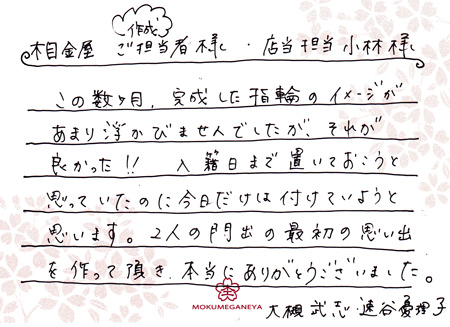 作成
杢目金屋 ご担当者様 ・ 店当担当 小林様
この数ヶ月、完成した指輪のイメージが
あまり浮かびませんでしたが、それが
良かった!! 入籍日まで置いておこうと
思っていたのに今日だけは付けていようと
思います。2人の門出の最初の思い出
を作って頂き、本当にありがとうございました。
MOKUMEGANEYA
大槻 武志 速谷 優理子